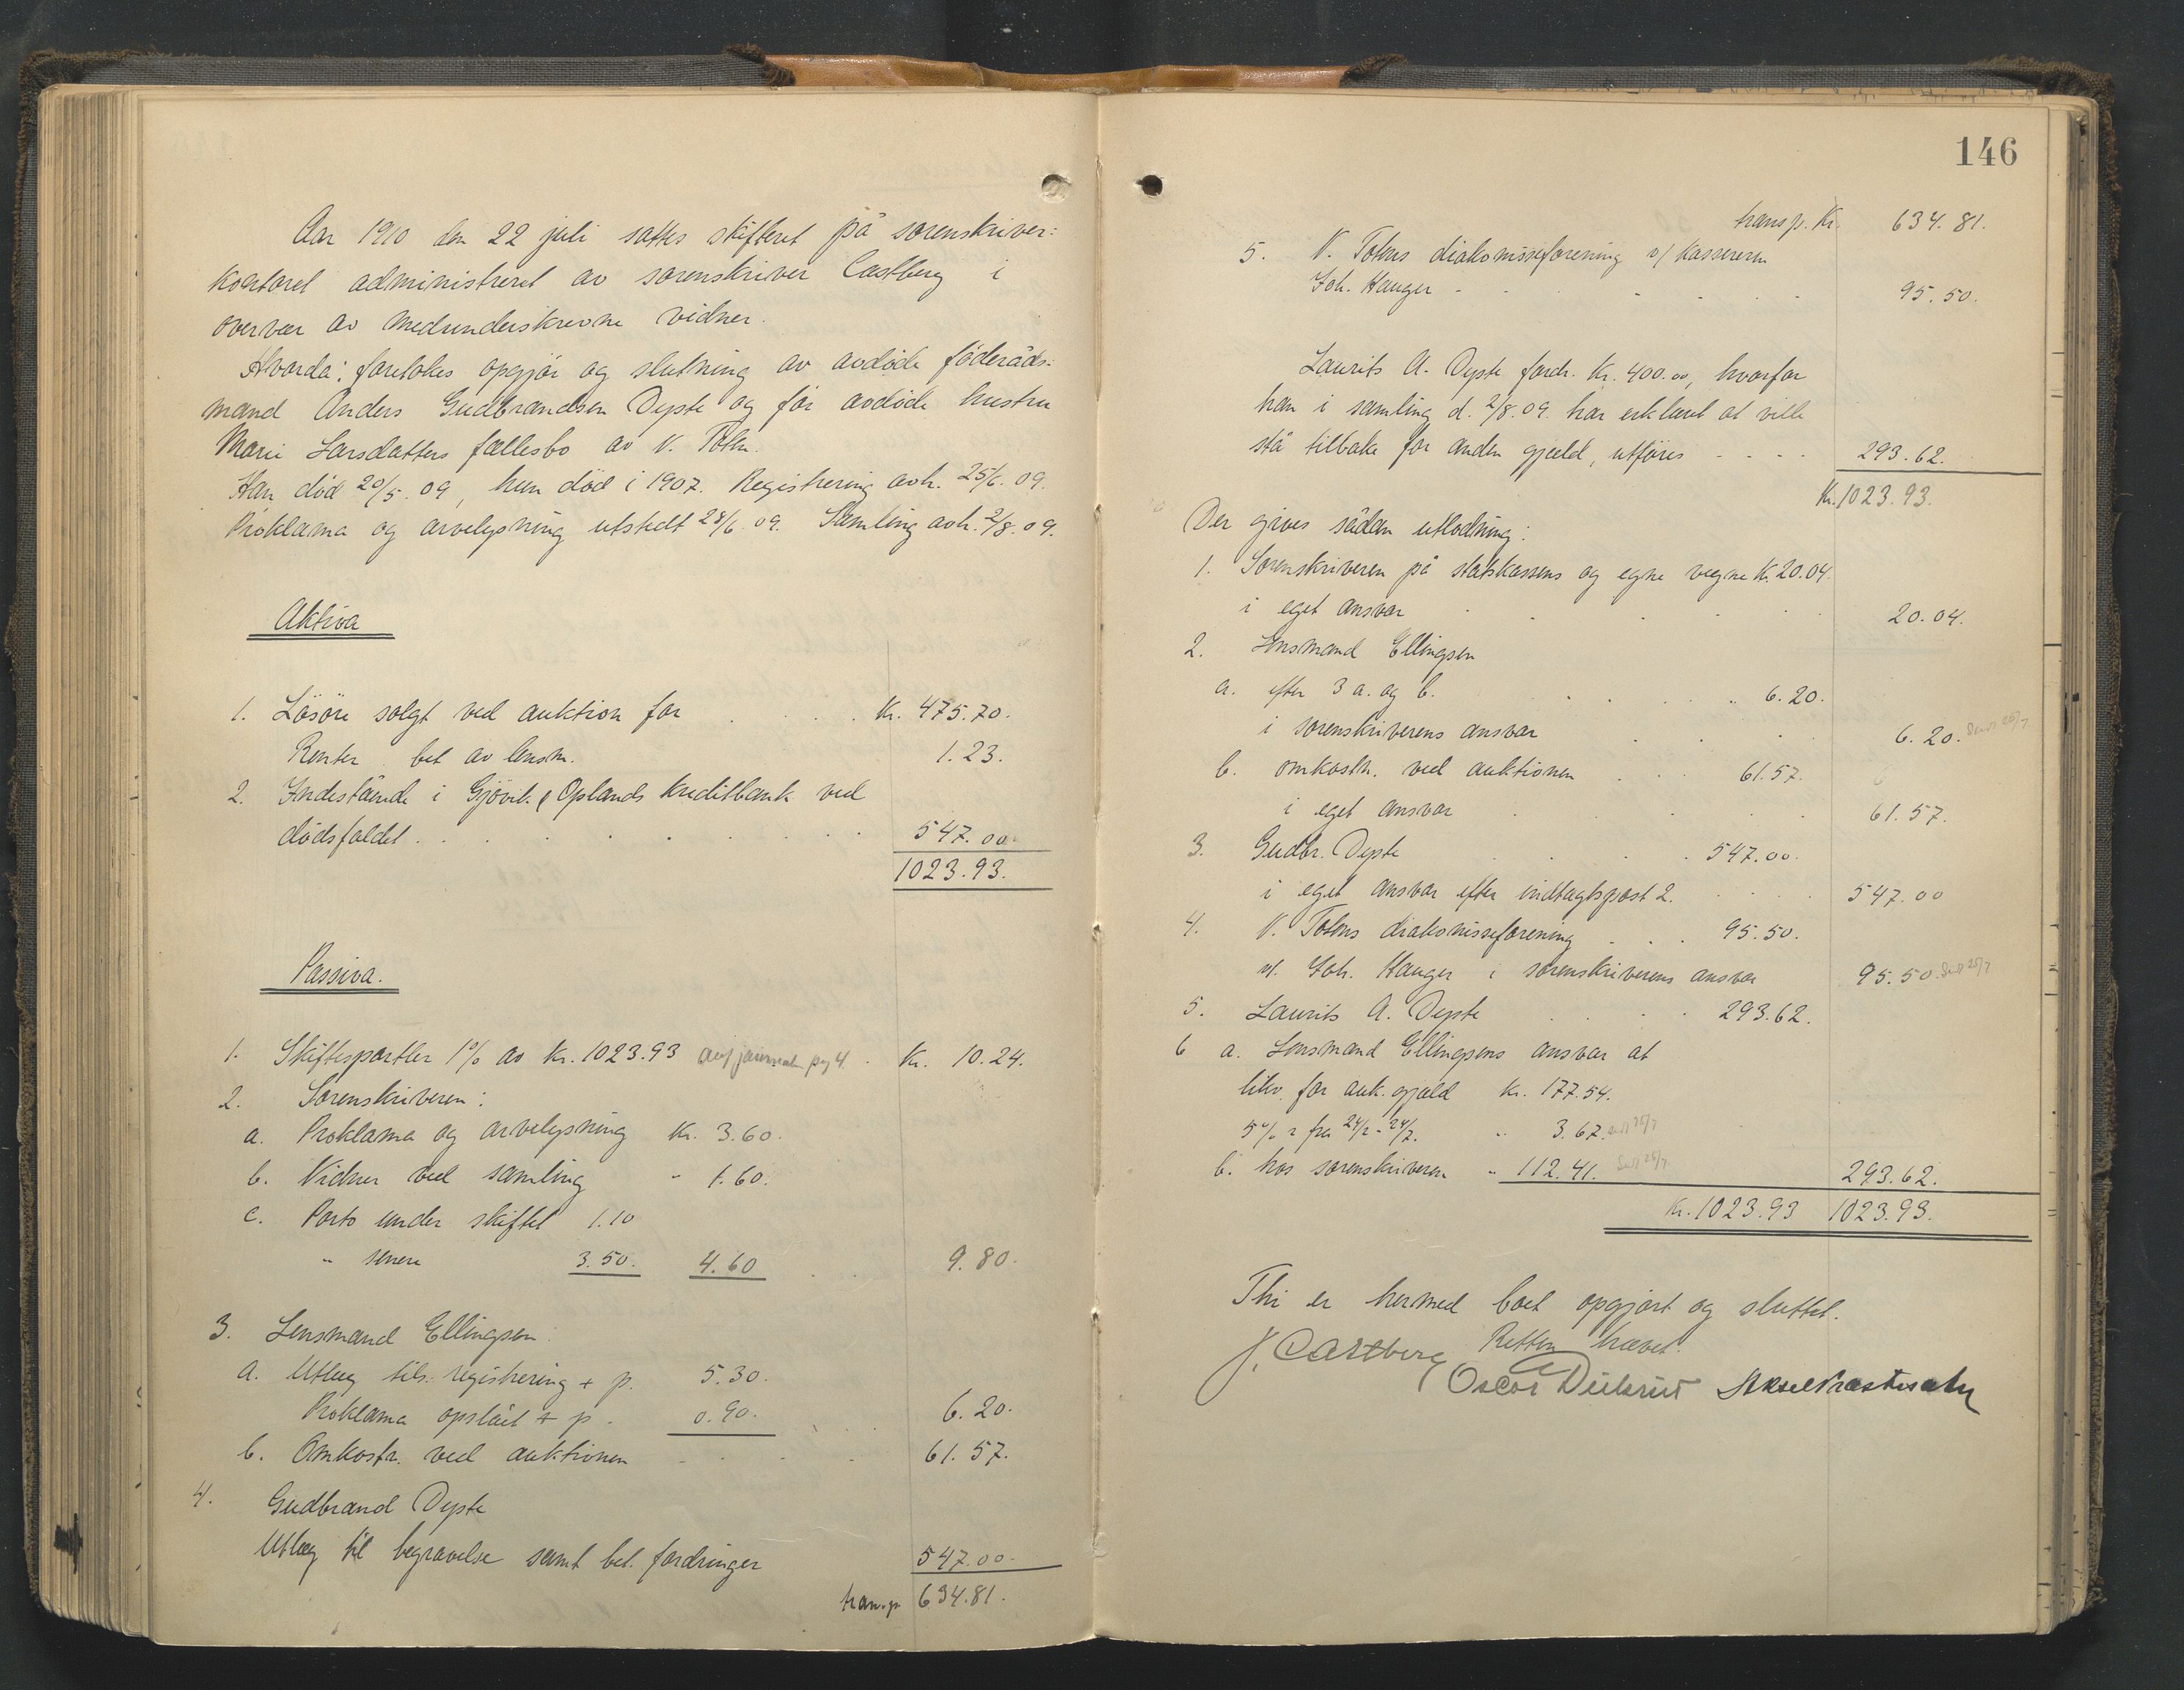 Aar 1910 den 22 juli sattes skifteret på sorenskriver:
kontoret administreret av sorenskriver Castberg i
overvær av medunderskrevne vidner.
Hvorda: foretokes opgjør og slutning av avdøde føderåds:
mand Anders Gudbrandsen Dyste og før avdøde hustru
Marie Larsdatters fællesbo av V. Toten.
Han død 20/5. 09, hun død i 1907. Registrering avh. 25/6. 09.
Proklama og arvelysning utstedt 28/6. 09. Samling avh. 2/8. 09.
Aktiva
1. Løsøre solgt ved auktion for . . . . Kr. 475.70.
Renter bet av lensm. 1.23.
2. Indestående i Gjøvik & Oplands kreditbank ved
dødsfaldet . . . . . . 547.00.
1023.93.
Passiva.
1. Skiftesportler 1% av Kr. 1023.93 Kr. 10.24.
2. Sorenskriveren:
a. Proklama og arvelysning Kr. 3.60.
b. Vidner ved samling " 1.60.
c. Porto under skiftet 1.10
" senere 3.50. 4.60 . . 9.80.
3. Lensmand Ellingsen:
a. Utlæg tils. registrering + p. 5.30.
Proklama opslået + p. 0.90. . . 6.20.
b. Omkostn. ved auktionen . . . 61.57.
4. Gudbrand Dyste
Utlæg til begravelse samt bet. fordringer 547.00.
transp. 634.81.
146
transp. Kr. 634.81.
5. V. Totens diakonisseforening v/ kassereren
Joh. Hauger . . . . 95.50.
Laurits A. Dyste fordr. Kr. 400.00, hvorfor
han i samling d. 2/8. 09. har erklæret at ville
stå tilbake for anden gjæld, utføres . . . . 293.62.
Kr. 1023.93.
Der gives sådan utlodning:
1. Sorenskriveren på statskassens og egne vegne Kr. 20.04.
i eget ansvar . . . . 20.04.
2. Lensmand Ellingsen
a. efter 3 a. og b. . . . . 6.20.
i sorenskriverens ansvar . . . 6.20.
b. omkostn. ved auktionen . . . 61.57.
i eget ansvar . . . . 61.57.
3. Gudbr. Dyste . . . . 547.00.
i eget ansvar efter indtægtspost 2. . . . 547.00
4. V. Totens diakonisseforening . . . 95.50.
v/. Joh. Hauger i sorenskriverens ansvar 95.50.
5. Laurits A. Dyste . . . . 293.62.
6 a. Lensmand Ellingsens ansvar at
tilsv. for auk. gjæld Kr. 177.54.
5% r fra 24/2 - 24/7. " 3.67.
b. hos sorenskriveren " 112.41. 293.62.
Kr. 1023.93 1023.93.
Thi er hermed boet opgjort og sluttet.
Retten hævet.
J. Castberg
Oscar